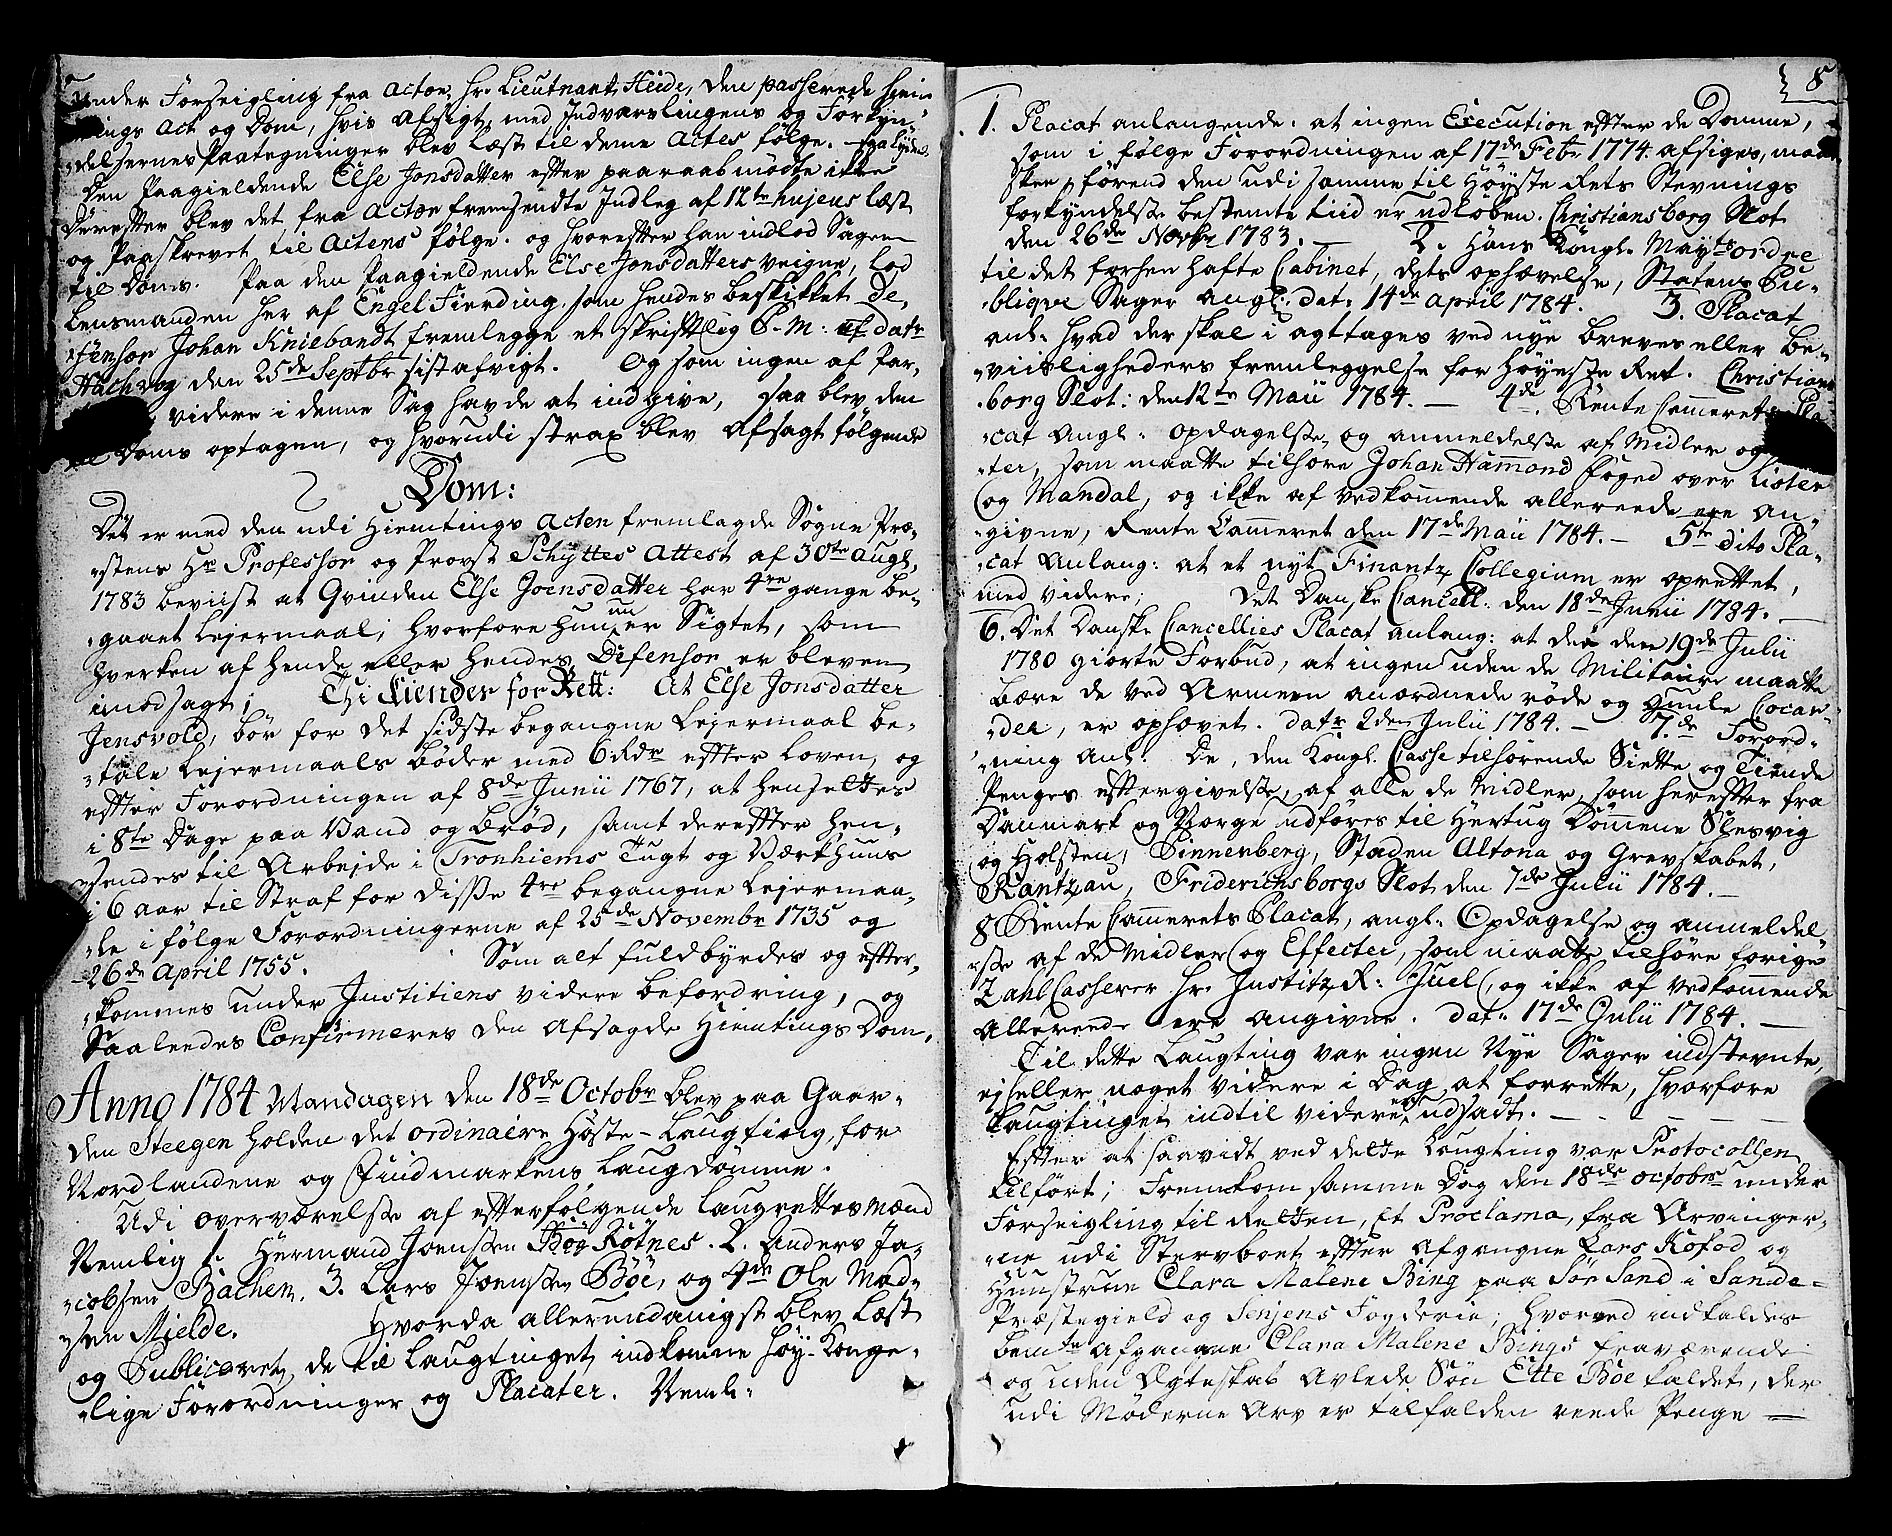 under Forseigling fra Acton, Hr. Lieutnant Heide, den passerede Hiem-
tings Act og Dom, hvis Afsigt, med Indvarslingens og Forkyn-
delsernes Paategninger blev læst til denne Actes følge. saa lydende
Den Paagieldende Else Jonsdatter effter paaraab mødte ikke
Dereffter blev det fra Acton fremsendte Indleg af 12te hujus læst
og Paaskrevet til Actens følge. og hvoreffter han indlod Sagen
til Doms. Paa den Paagieldende Else Jonsdatters veigne, lod
Lensmanden her af Engel Fierding, som hendes beskikket De-
fensor Johan Kniebandt fremlegge et skriftlig P. M: af dat
den 25de Septbr sistafvigt. Og som ingen af Par-
videre i denne Sag havde at indgive, saa blev den
til Doms optagen, og hvorudi strax blev afsagt følgende
Dom:
Det er med den udi Hiemtings Acten fremlagde Sogne Præ-
stens Hr Professor og Provst Schyttes Attest af 30te Augl,
1783 beviist at Qvinden Else Joensdatter har 4re gange be-
gaaet Lejermaal; hvorfore hun nu er Sigtet, som
hverken af hende eller hendes Difensor er bleven
imodsagt; Thi Kiendes for Rett: At Else Jonsdatter
Jensvold, bør for det sidste begangne Lejermaal be-
tale Lejermaals bøder med 6 Rdr effter Loven, og
effter Forordningen af 8de Junii 1767, at hensettes
i 8te Dage paa Vand og Brød, samt dereffter hen-
sendes til Arbejde i Tronhiems Tugt og Værkhuus
i 6 aar til Straf for disse 4re begangne Lejermaa-
le i følge Forordningerne af 25de Novembr 1735 og
26de April 1755. Som alt fuldbyrdes og effter-
kommes under Justitiens videre befordring, og
Saaleedes Confirmeres den afsagde Hiemtings Dom.
Anno 1784 Mandagen den 18de Octobr blev paa Gaar-
den Steegen holden det ordinaire Høste-Laugting, for
Nordlandene og Findmarkens Laugdømme.
Udi overværelse af effterfølgende Laugrettesmænd
Nemlig 1. Hermand Joensen Bøe Røtnes. 2. Anders Ja-
cobsen Bachen. 3. Lars Joensen Bøe, og 4de Ole Mad-
sen Mjelde. Hvorda allerundanigst blev læst
og Publiceret, de til Laugtinget indkomne høy-Konge-
lige Forordninger og Placater. Neml:
8
1. Placat anlangende: at ingen Execution effter de Domme,
som i følge Forordningen af 17de Febr 1774. afsiges, maa
skee, førend den udi samme til Høyste Rets Stevnings
forkyndelse bestemte tiid er udløben. Christiansborg Slot
den 26de Novbr 1783. — 2. Hans Kongl. Mayts ordre
til det forhen hafte Cabinet, dets ophævelse, Statens Pu-
blique Sager angl: dat: 14de April 1784. 3. Placat
anl: hvad der skal i agttages ved nye breves eller be-
viisligheders fremleggelse for Høyeste Ret. Christians-
borg Slot: den 12te Maii 1784. — 4de. Rente Cammerets Pla-
cat Angl: opdagelse og anmeldelse af Midler og
ter, som maatte tilhøre Johan Hammond foged over Lister
og Mandal, og ikke af vedkommende allereede ere an-
givne, Rente Cammeret den 17de Maii 1784. — 5te dito Pla-
cat Anlang: at et nyt Finantz Collegium er oprettet,
med videre; Det Danske Cancell. den 18de Junii 1784. —
6. Det Danske Cancellies Placat anlang: at det den 19de Julii
1780 giorte Forbud, at ingen uden de Militaire maatte
bære de ved Armeen anordnede røde og Huule Cocar-
der, er ophævet. dat 2den Julii 1784. — 7.de Forord-
ning Anl: De, den Kongl. Casse tilhørende Siette og Tiende
Penges efftergivelse, af alle de Midler, som hereffter fra
Danmark og Norge udføres til Hertug Dømmene Slesvig
og Holsten, Pinnenberg, Staden Altona og Grevskabet,
Rantzau, Friderichsborgs Slot den 7de Julii 1784. —
8 Rente Cammerets Placat, angl: Opdagelse og anmeldel-
se af de Midler og Effecter, som maatte tilhøre forige
Zahl Casserer Hr. Justitz R: Juel, og ikke af vedkommende
Allereede ere angivne. dat: 17de Julii 1784. —
Til dette Laugting var ingen Nye Sager indstevnte,
ej heller noget videre i Dag at forrette, hvorfore
Laugtinget indtil videre udsadt. —
Effter at saavidt ved dette Laugting var Protocollen
tilført; Fremkom samme Dag den 18de octobr under
Forseigling til Retten, Et Proclama, fra Arvinger-
ne udi Stervboet effter Afgangne Lars Kofod og
Hunstrue Clara Malene Bing paa Sør Sand i Sande-
Præstegield og Senjens Fogderie, hvorved indkaldes
bemte afgangne Clara Malene Bings fraværende
og uden Ægteskab Avlede Søn Ette Bøe kaldet, der
udi Møderne Arv er tilfalden reede Penge —